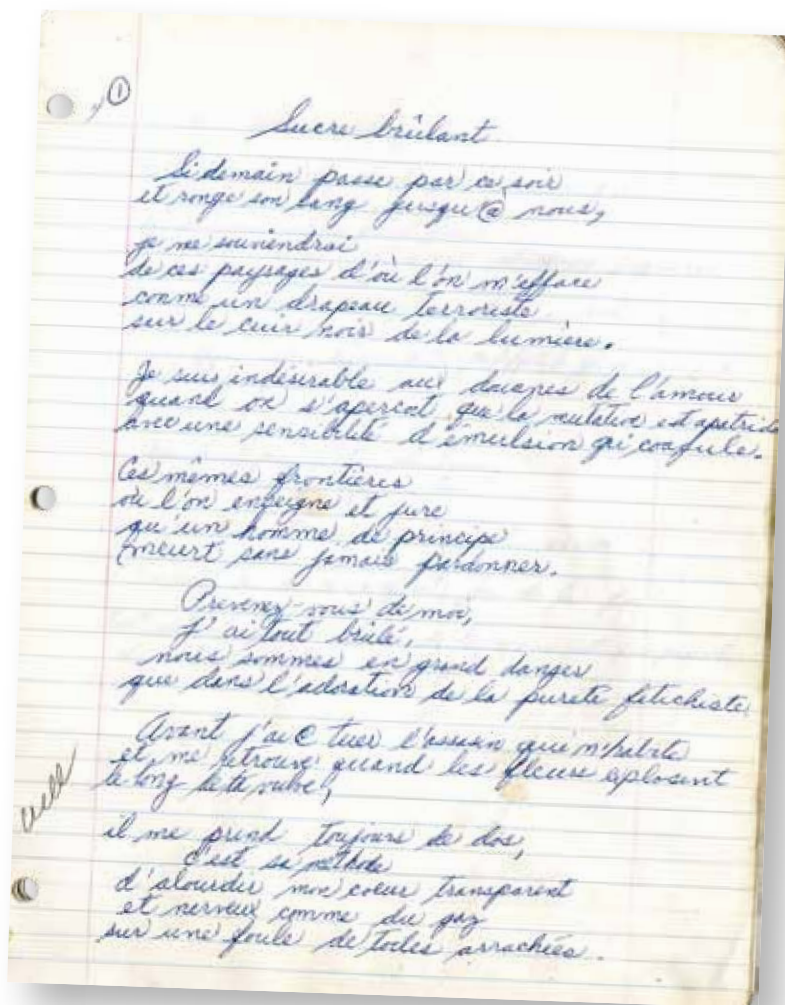 ①
Sucre brûlant
Si demain passe par ce soir
et ronge son sang jusqu'@ nous,
je me souviendrai
de ces paysages d'où l'on m'efface
comme un drapeau terroriste
sur le cuir noir de la lumière.
Je suis indésirable aux douanes de l'amour
quand on s'aperçoit que la mutation est apatride
avec une sensibilité d'émulsion qui coagule.
Ces mêmes frontières
où l'on enseigne et jure
qu'un homme de principe
meurt sans jamais pardonner.
Prévenez-vous de moi,
j'ai tout brûlé,
nous sommes en grand danger
que dans l'adoration de la pureté fétichiste.
Avant j'ai @ tuer l'assassin qui m'habite
et me retrouve quand les fleurs explosent
le long de ta
il me prend toujours de dos,
c'est sa méthode
d'alourdir mon coeur transparent
et nerveux comme du gaz
sur une foule de toiles arrachées.